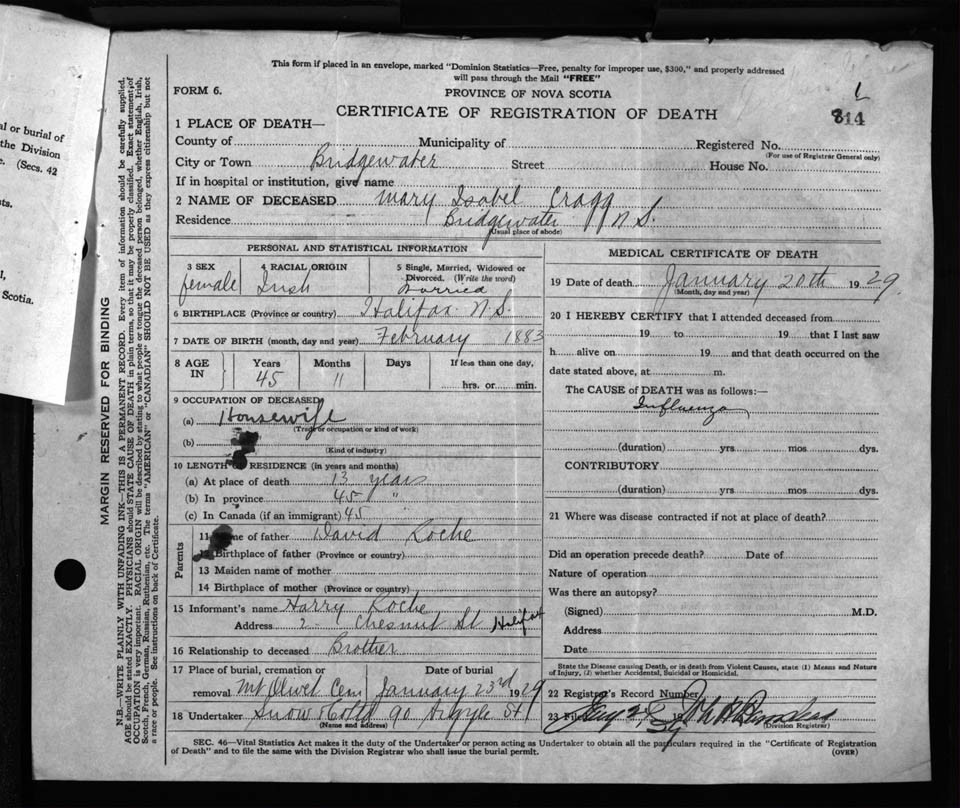 al or burial of
the Division
e. (Secs. 42
ts.
l,
Scotia.
MARGIN RESERVED FOR BINDING
N.B.—WRITE PLAINLY WITH UNFADING INK—THIS IS A PERMANENT RECORD. Every item of information should be carefully supplied.
AGE should be stated EXACTLY. PHYSICIANS should STATE CAUSE OF DEATH in plain terms, so that it may be properly classified. Exact statement of
OCCUPATION is very important. RACIAL ORIGIN will be described by stating to what people or tongue the deceased person belonged, whether English, Irish,
Scotch, French, German, Russian, Ruthenian, etc. The terms "AMERICAN" or "CANADIAN" SHOULD NOT BE USED as they express citizenship but not
a race or people. See instructions on back of Certificate.
This form if placed in an envelope, marked "Dominion Statistics—Free, penalty for improper use, $300," and properly addressed
will pass through the Mail "FREE"
FORM 6. PROVINCE OF NOVA SCOTIA
L
CERTIFICATE OF REGISTRATION OF DEATH 814
1 PLACE OF DEATH—
County of Municipality of Registered No.
(For use of Registrar General only)
City or Town Bridgewater Street House No.
If in hospital or institution, give name
2 NAME OF DECEASED Mary Isabel Cragg
Residence Bridgewater N.S.
(Usual place of abode)
PERSONAL AND STATISTICAL INFORMATION
3 SEX 4 RACIAL ORIGIN 5 Single, Married, Widowed or
Divorced. (Write the word)
female Irish Married
6 BIRTHPLACE (Province or country) Halifax N.S.
7 DATE OF BIRTH (month, day and year) February 1883
8 AGE IN Years Months Days If less than one day,
45 11 hrs. or min.
9 OCCUPATION OF DECEASED
(a) Housewife
(Trade or occupation or kind of work)
(b)
(Kind of industry)
10 LENGTH RESIDENCE (in years and months)
(a) At place of death 13 years
(b) In province 45 "
(c) In Canada (if an immigrant) 45
Parents
11 me of father David Roche
12 Birthplace of father (Province or country)
13 Maiden name of mother
14 Birthplace of mother (Province or country)
15 Informant's name Harry Roche
Address 2 Chesnut St Halifax
16 Relationship to deceased Brother
17 Place of burial, cremation or Date of burial
removal Mt Olivet Cem January 23rd 1929
18 Undertaker Snow & Co Ltd 90 Argyle St
(Name and address)
MEDICAL CERTIFICATE OF DEATH
19 Date of death January 20th 1929.
(Month, day and year)
20 I HEREBY CERTIFY that I attended deceased from
19 to 19 that I last saw
h alive on 19 and that death occurred on the
date stated above, at m.
The CAUSE of DEATH was as follows:—
Influenza
(duration) yrs mos dys.
CONTRIBUTORY
(duration) yrs mos dys.
21 Where was disease contracted if not at place of death?
Did an operation precede death? Date of
Nature of operation
Was there an autopsy?
(Signed) M.D.
Address
Date
State the Disease causing Death, or in death from Violent Causes, state (1) Means and Nature
of Injury, (2) whether Accidental, Suicidal or Homicidal.
22 Registrar's Record Number
23
(Division Registrar)
SEC. 46—Vital Statistics Act makes it the duty of the Undertaker or person acting as Undertaker to obtain all the particulars required in the "Certificate of Registration
of Death" and to file the same with the Division Registrar who shall issue the burial permit. (OVER)